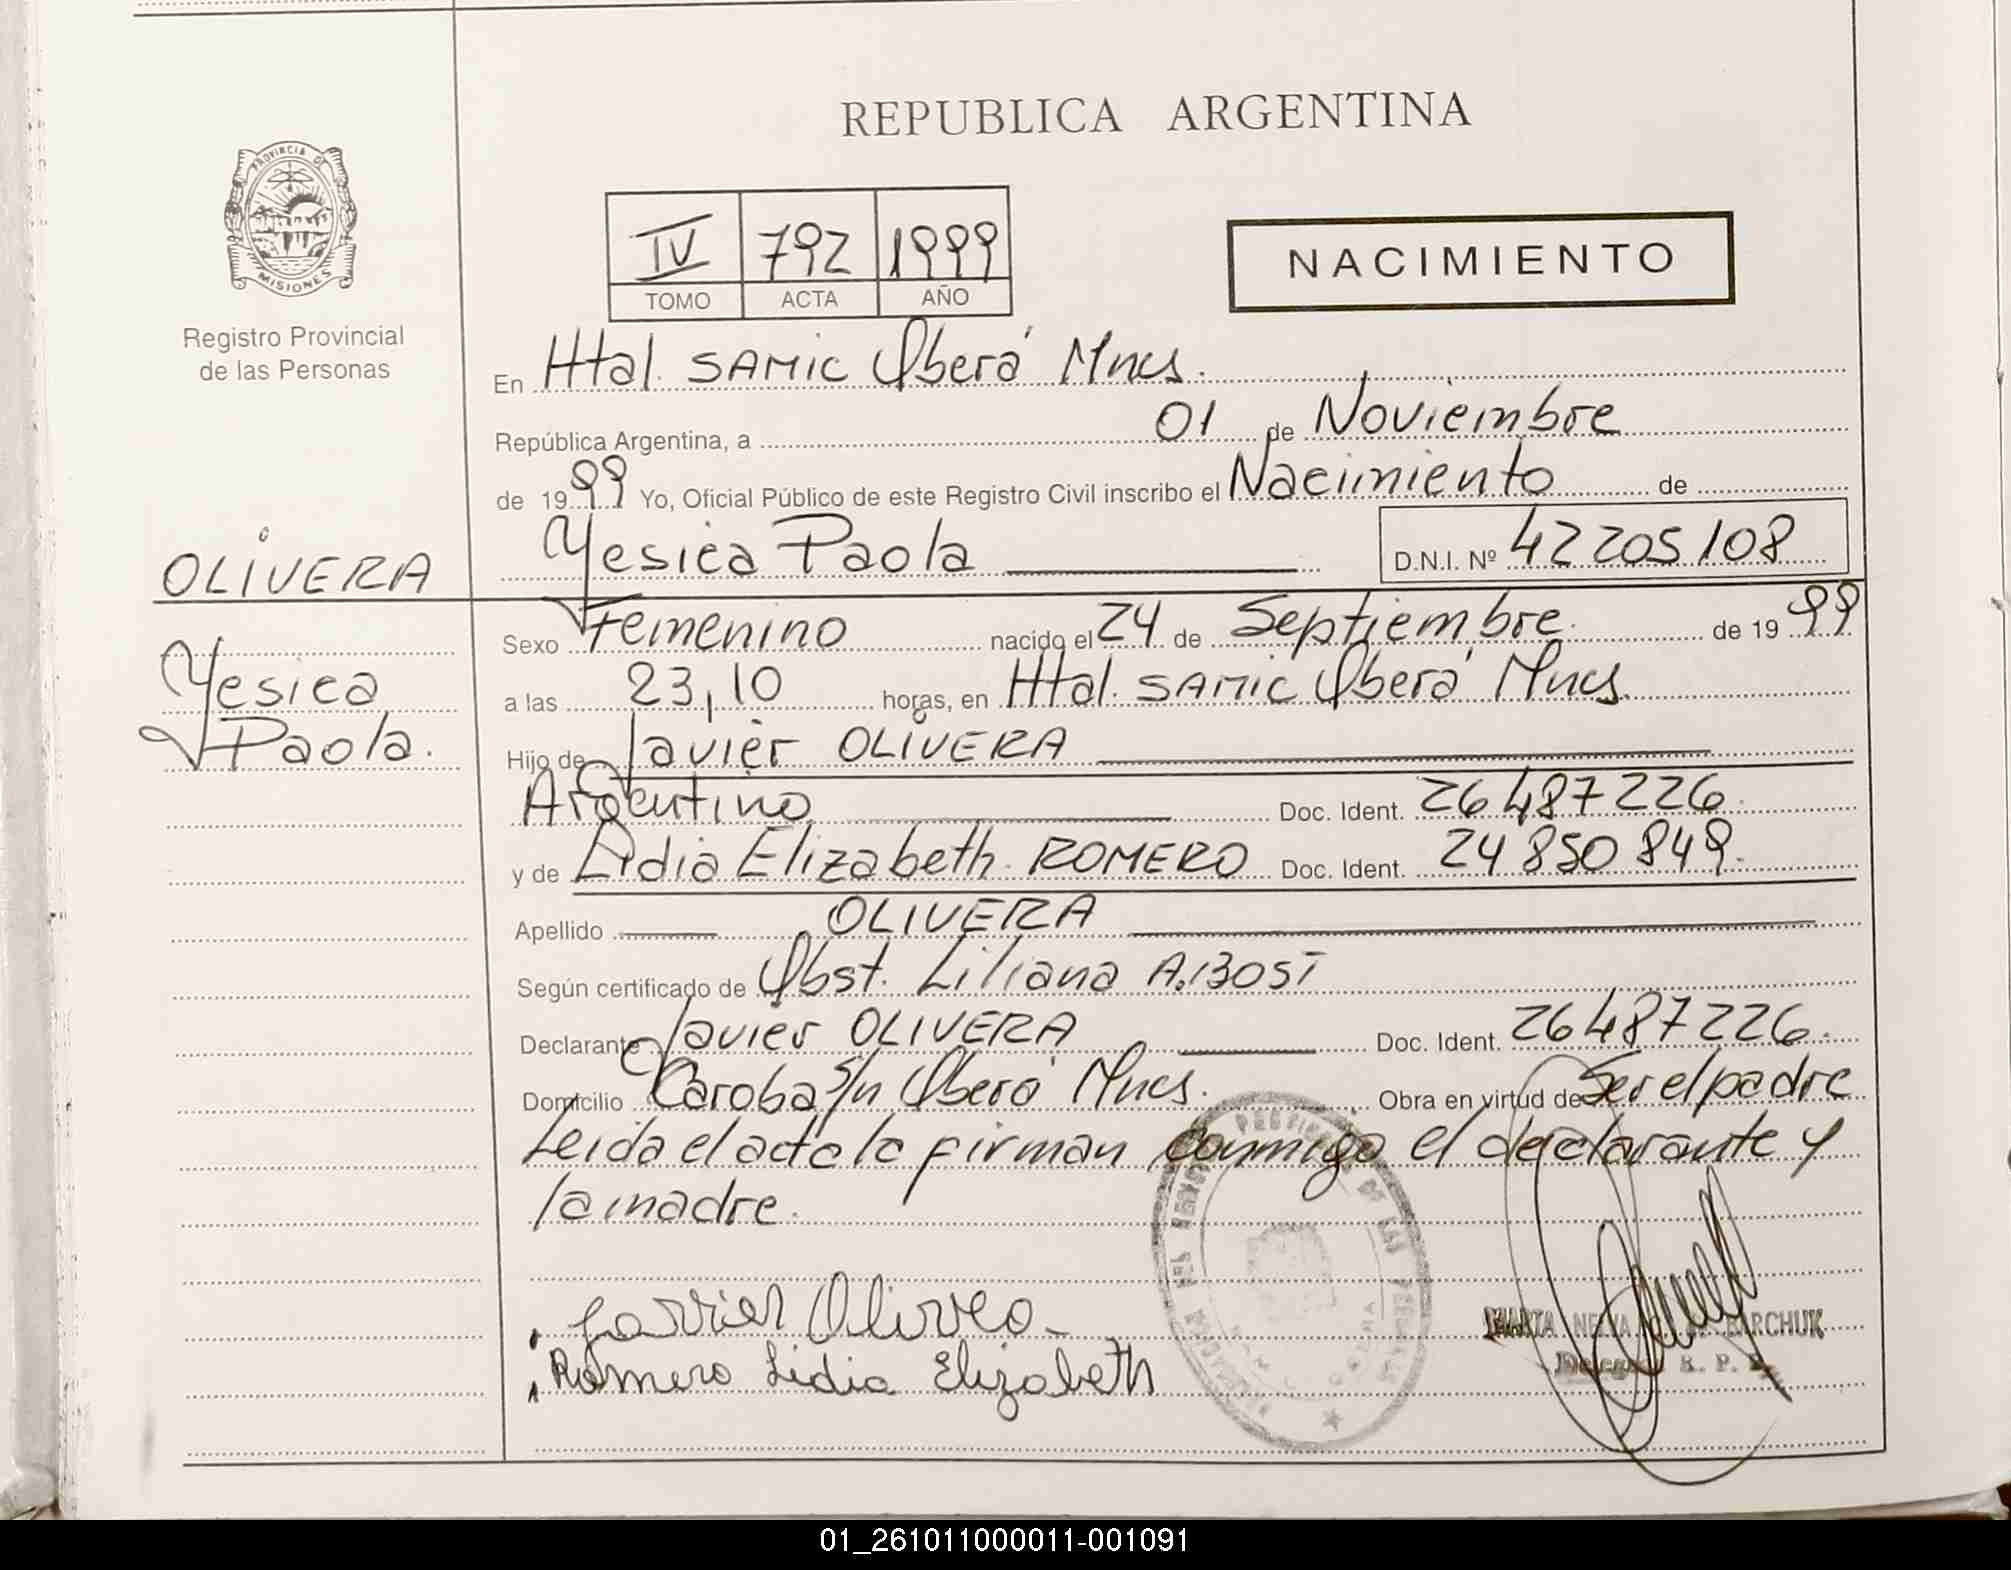 REPUBLICA ARGENTINA
PROVINCIA DE
MISIONES
Registro Provincial
de las Personas
IV 792 1999
TOMO ACTA AÑO
NACIMIENTO
En Htal. SAMIC Oberá Mnes.
República Argentina, a 01 de Noviembre
de 1999 Yo, Oficial Público de este Registro Civil inscribo el Nacimiento de
Yesica Paola D.N.I. Nº 42205108
OLIVERA
Yesica
Paola.
Sexo Femenino nacido el 24 de Septiembre de 1999
a las 23,10 horas, en Htal. SAMIC Oberá Mnes.
Hijo de Javier OLIVERA
Argentino Doc. Ident. 26487226.
y de Lidia Elizabeth ROMERO Doc. Ident. 24850849.
Apellido OLIVERA
Según certificado de Obst. Liliana A. BOST
Declarante Javier OLIVERA Doc. Ident. 26487226.
Domicilio Caroba s/n Oberá Mnes. Obra en virtud de Ser el padre
Leida el acta la firman conmigo el declarante y
la madre.
Romero Lidia Elizabeth
01_261011000011-001091